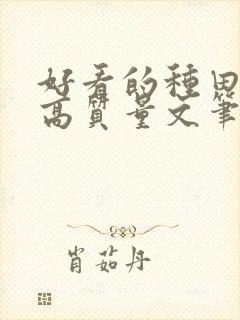 好看的種田
高質量文筆
肖茹丹